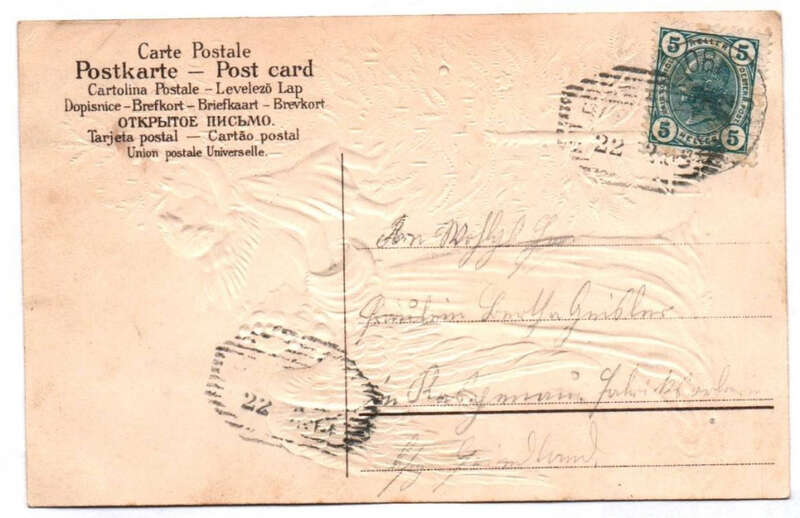 Carte Postale
Postkarte — Post card
Cartolina Postale - Levelező Lap
Dopisnice - Brefkort - Briefkaart - Brevkort
ОТКРЫТОЕ ПИСЬМО.
Tarjeta postal — Cartão postal
Union postale Universelle.—
5 HELLER 5
5 HELLER 5
22
An Wohlgb
Fräulein Bertha Geisler
in
b/g Friedland
22